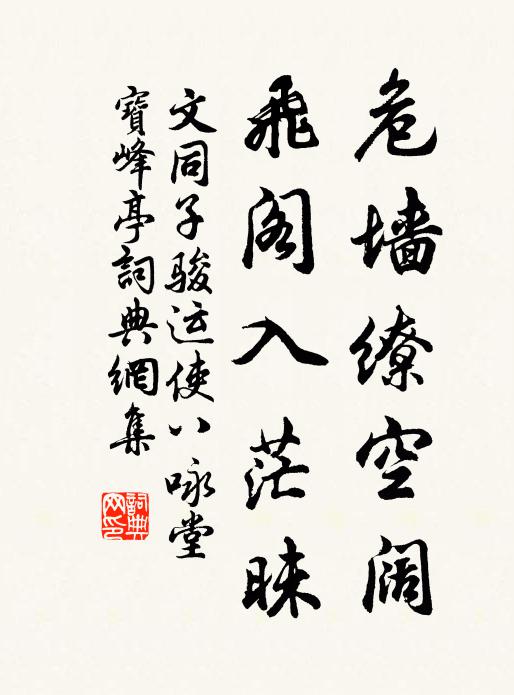 危墙缭空阔
飛阁入茫昧
文同子骏运使八咏堂
寶峰亭詞典網集
詞典网印